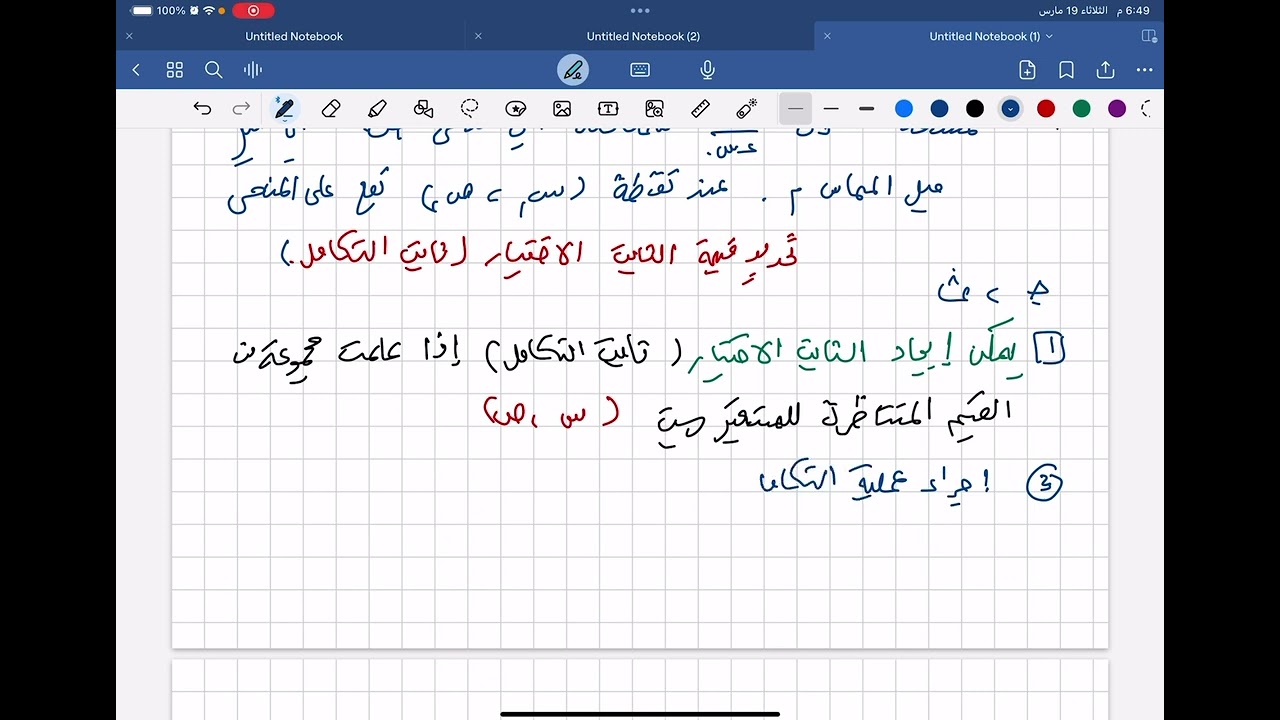 100% 6:49 م الثلاثاء 19 مارس
Untitled Notebook Untitled Notebook (2) Untitled Notebook (1)
عس.
ميل المماس م . عند نقطة (س، ، ص،) تقع على المنحى
تحديد قيمة الثابت الاختيار (ثابت التكامل.)
جـ ، ث
1 يمكن إيجاد الثابت الاختيار (ثابت التكامل) إذا علمت مجموعة من
القيم المتناظرة للمتغيرين (س ، ص)
2 اجراء عملية التكامل